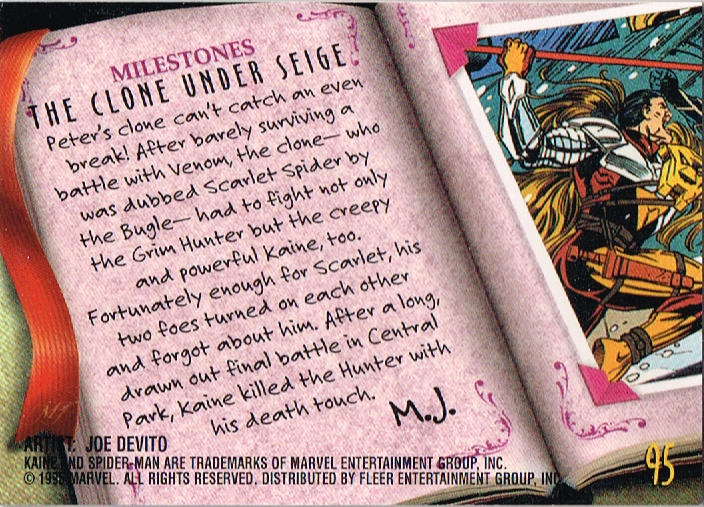 MILESTONES
THE CLONE UNDER SEIGE
Peter's clone can't catch an even
break! After barely surviving a
battle with Venom, the clone—who
was dubbed Scarlet Spider by
the Bugle—had to fight not only
the Grim Hunter but the creepy
and powerful Kaine, too.
Fortunately enough for Scarlet, his
two foes turned on each other
and forgot about him. After a long,
drawn out final battle in Central
Park, Kaine killed the Hunter with
his death touch.
M.J.
ARTIST: JOE DEVITO
KAINE AND SPIDER-MAN ARE TRADEMARKS OF MARVEL ENTERTAINMENT GROUP, INC.
© MARVEL. ALL RIGHTS RESERVED. DISTRIBUTED BY FLEER ENTERTAINMENT GROUP, INC
95